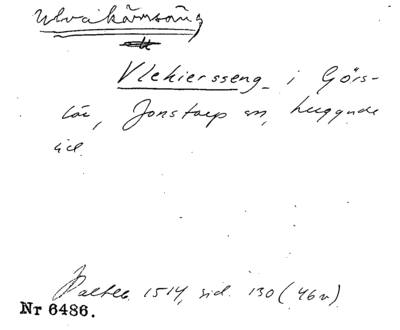 Ulvakärrsäng
Vlekiersseng i Görs-
löv, Jonstorp sn, huggande
äcl.
Paltebo 1514, sid. 130 (46v)
Nr 6486.